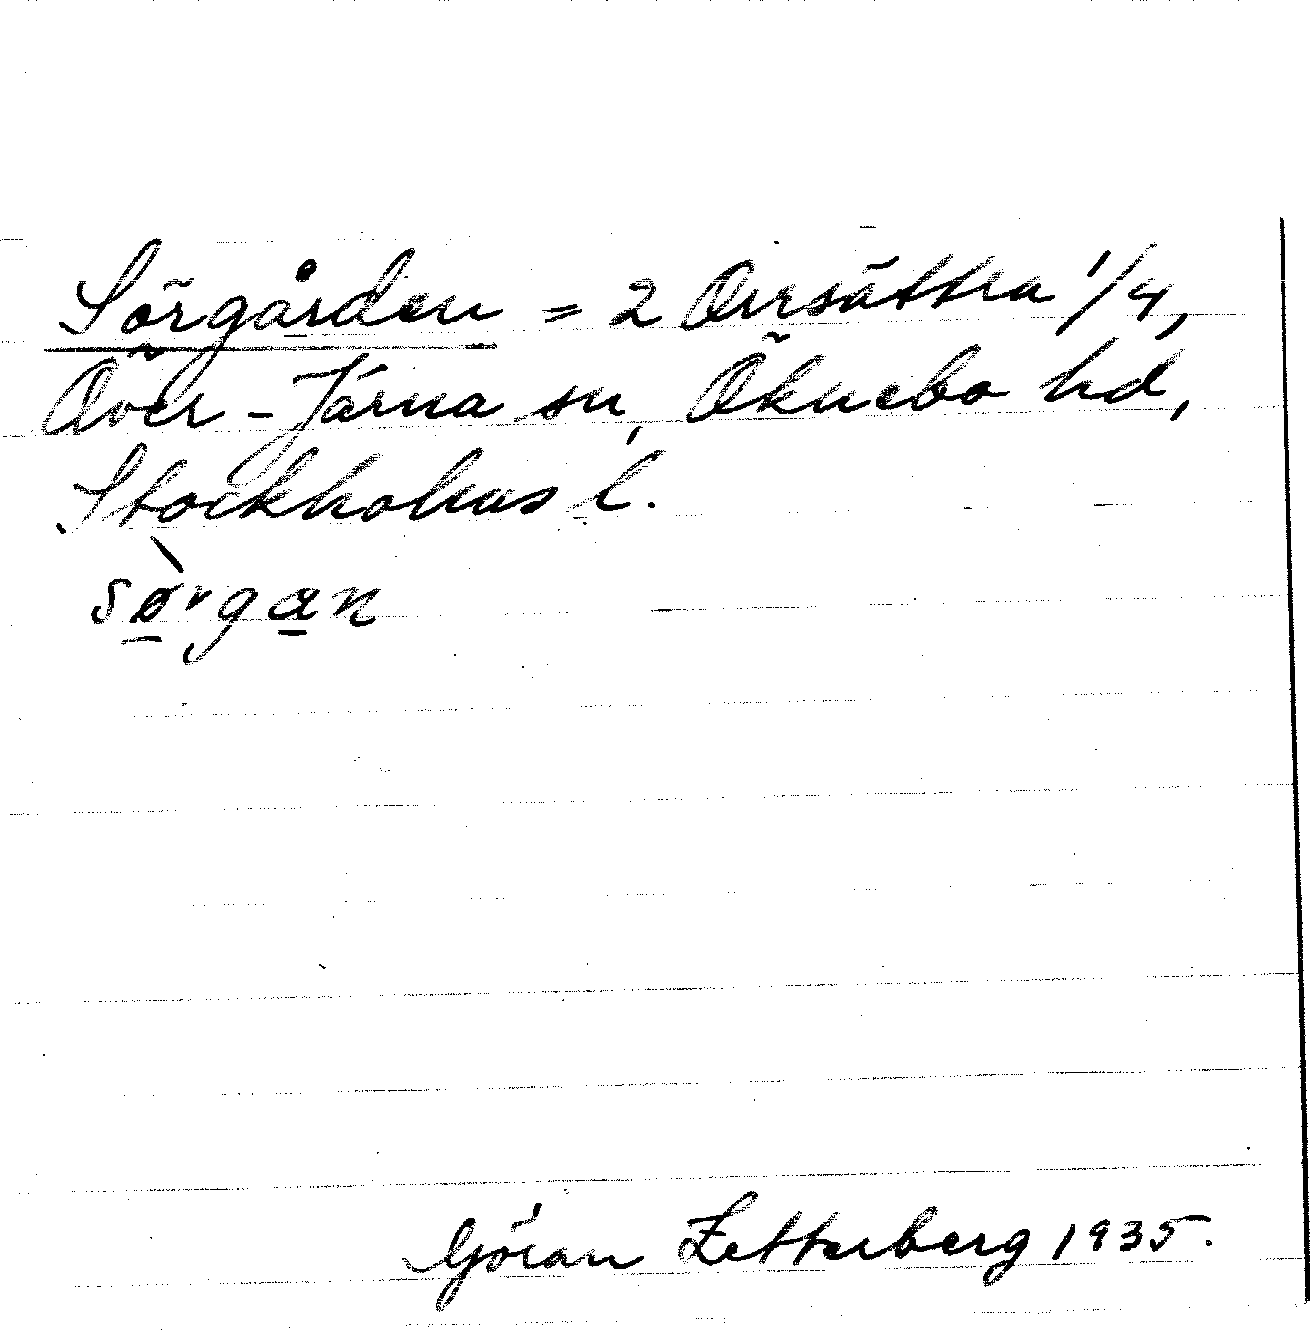 Sörgården = 2 Orrsättra 1/4,
Över-Järna sn, Öknebo hd,
Stockholms l.
sø̱̀rga̱n
Göran Zetterberg 1935.